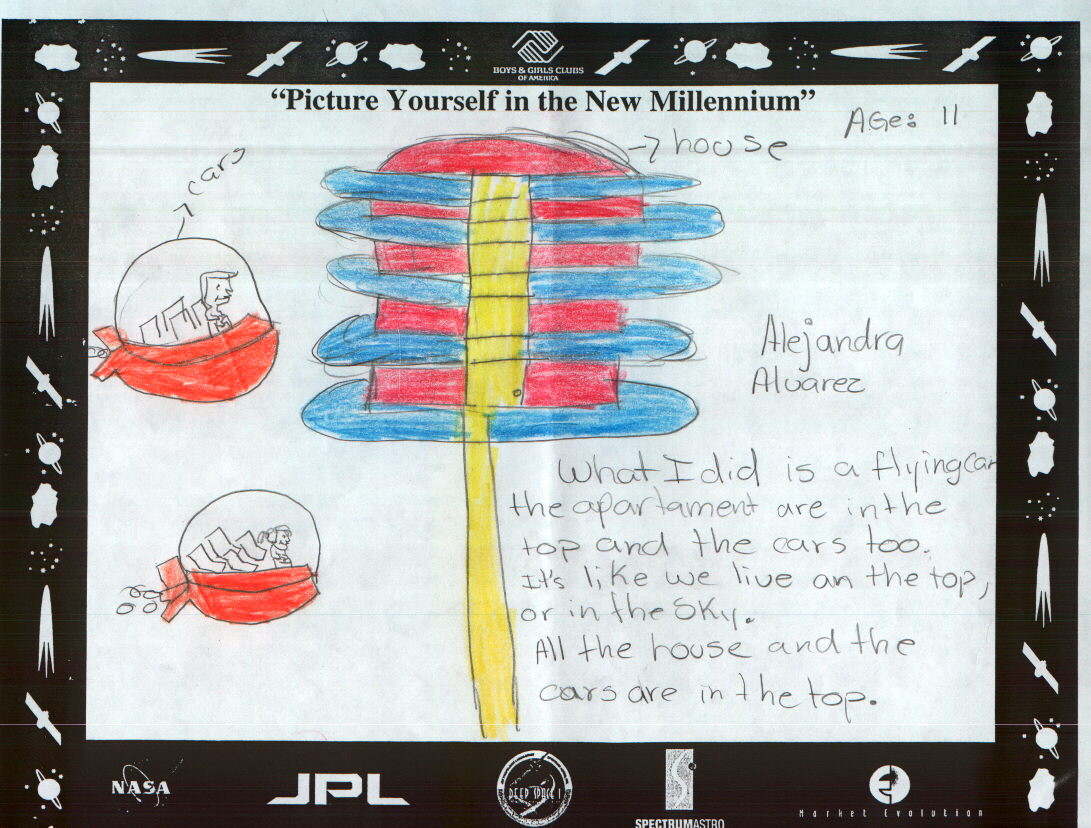 BOYS & GIRLS CLUBS
OF AMERICA
"Picture Yourself in the New Millennium"
AGe: 11
→ house
→ cars
Alejandra
Alvarez
What I did is a flying car
the apartament are in the
top and the cars too.
It's like we live an the top,
or in the sky.
All the house and the
cars are in the top.
NASA
JPL
DEEP SPACE 1
SPECTRUMASTRO
Market Evolution